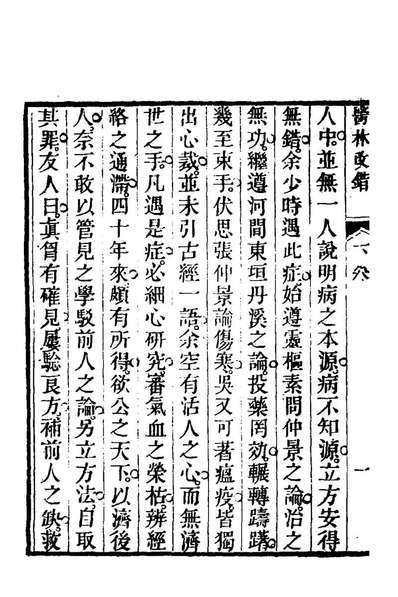 醫林改錯 下卷 一
人中。並無一人說明病之本源。病不知源。立方安得
無錯。余少時遇此症。始遵靈樞素問仲景之論。治之
無功。繼遵河間東垣丹溪之論。投藥罔效。輾轉躊躇。
幾至束手。伏思張仲景論傷寒。吳又可著瘟疫。皆獨
出心裁。並未引古經一語。余空有活人之心。而無濟
世之手。凡遇是症。必細心研究。審氣血之榮枯。辨經
絡之通滯。四十年來。頗有所得。欲公之天下。以濟後
人。奈不敢以管見之學。駁前人之論。另立方法。自取
其罪。友人曰。眞胷有確見。屢驗良方。補前人之缺。救